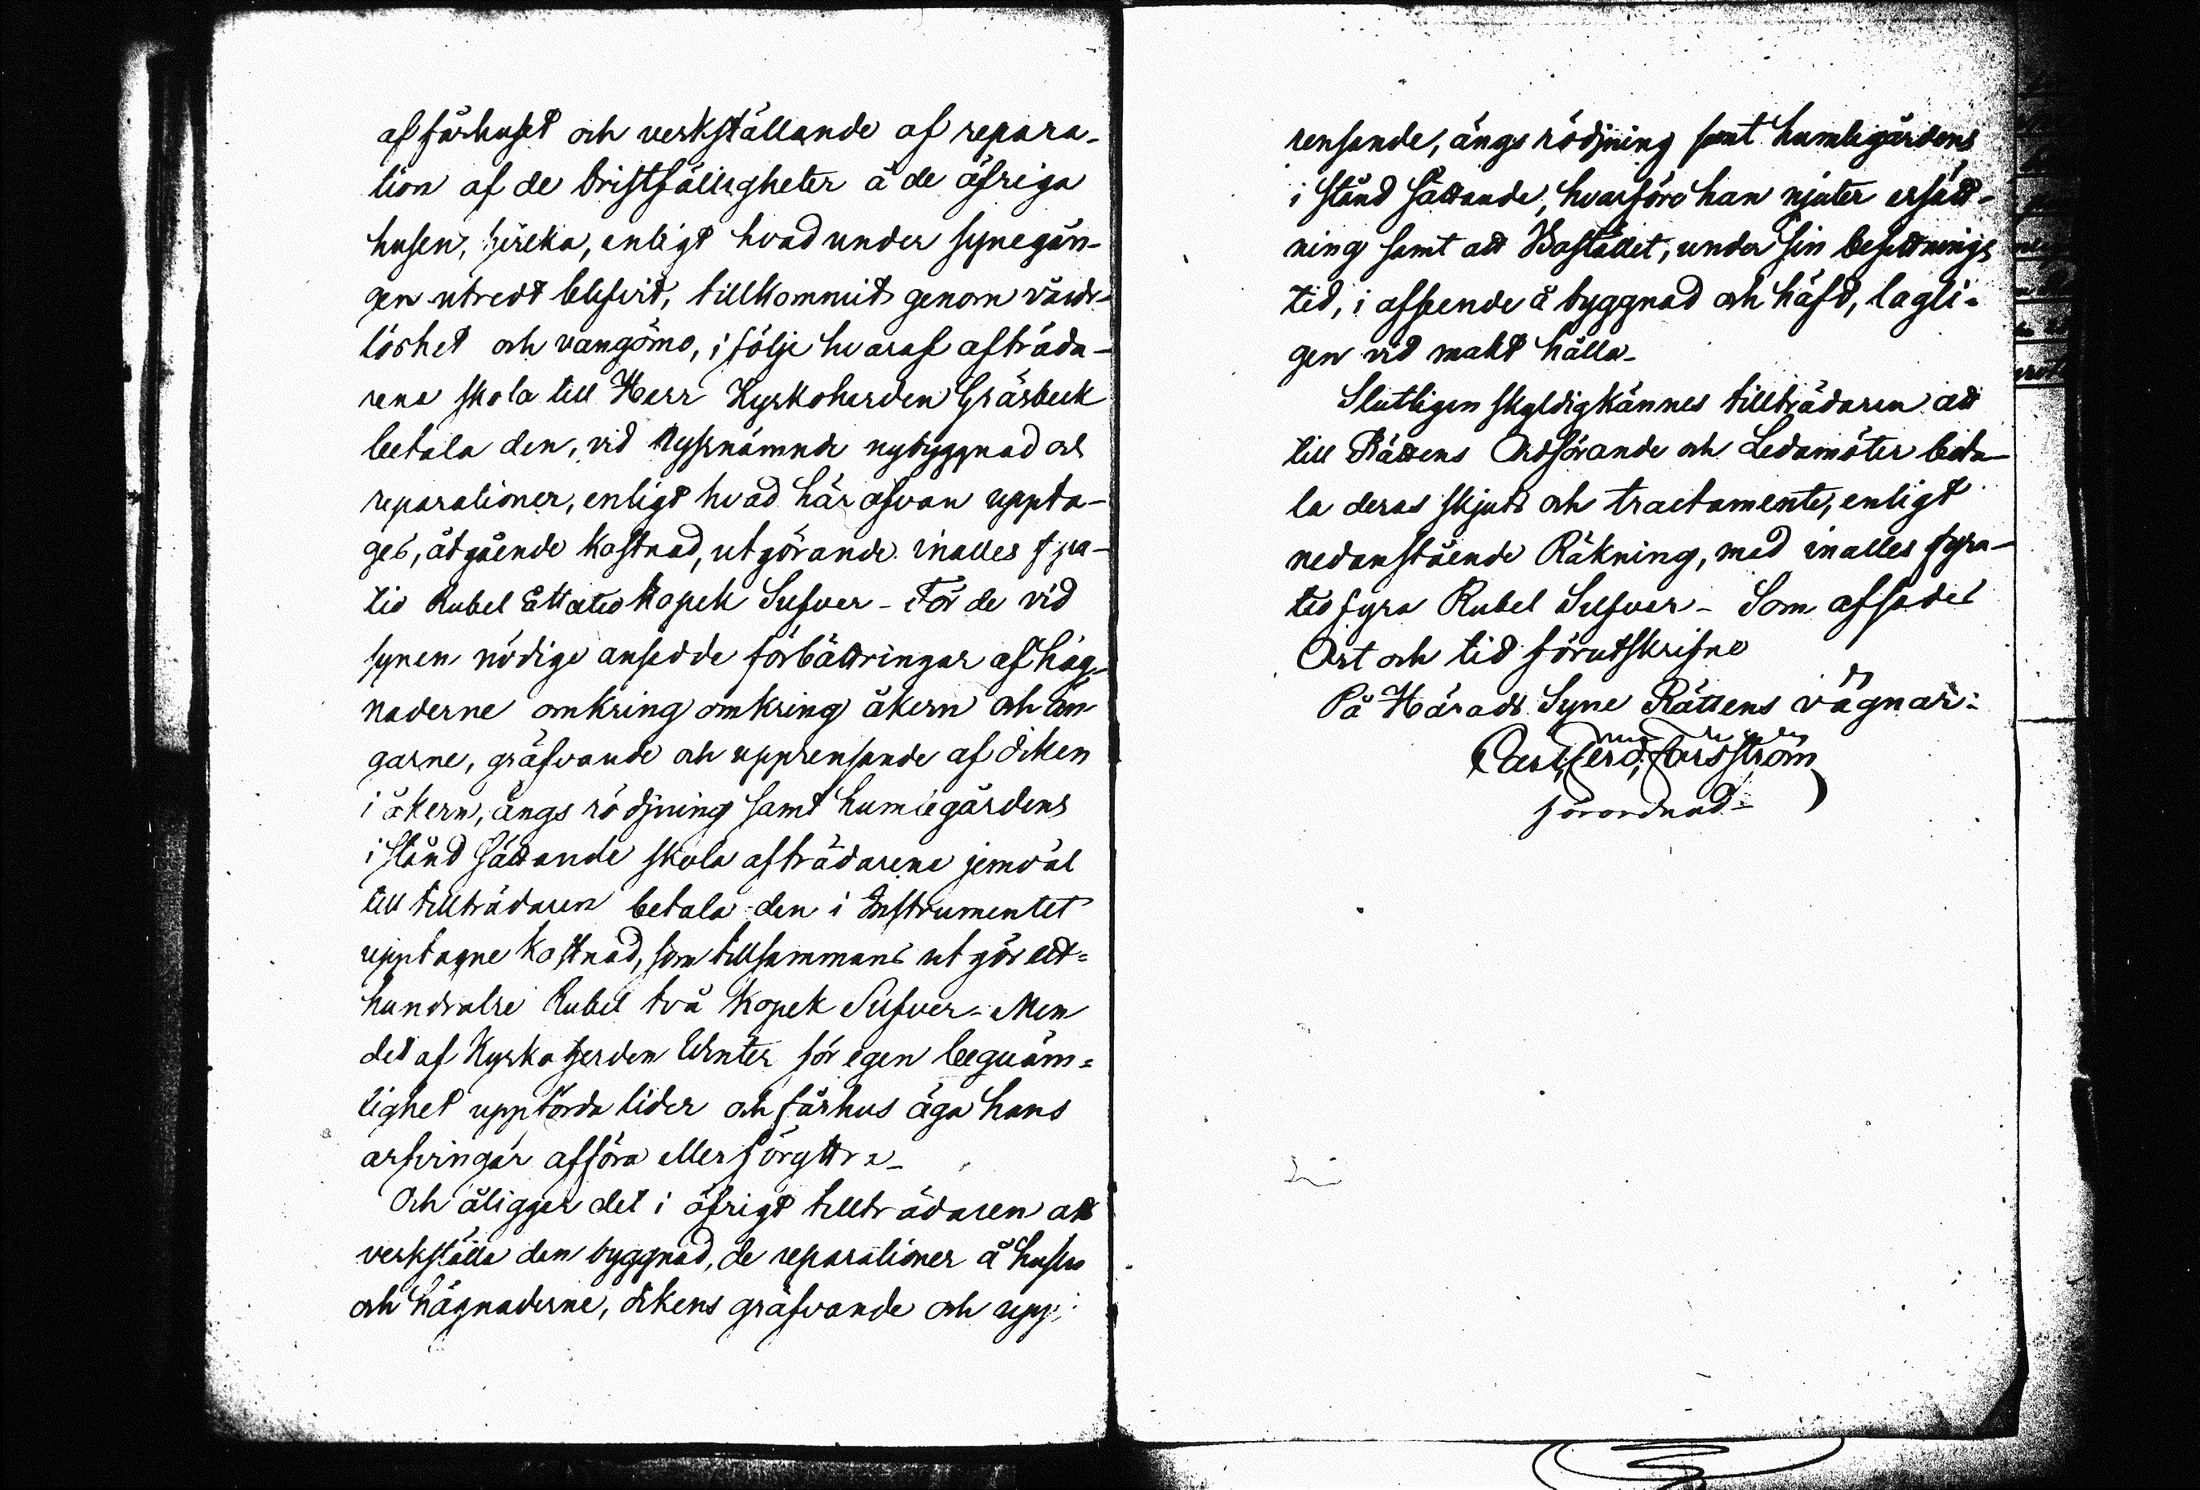 af fårhuset och verkställande af repara-
tion af de bristfälligheter å de öfriga
husen, hvilka, enligt hvad under synegån-
gen utredt blifvit, tillkommit genom vård-
löshet och vangömo, i följe hvaraf afträda-
rene skola till Herr Kyrkoherden Gräsbeck
betala den, vid nyssnämnde nybyggnad och
reparationer, enligt hvad här ofvan uppta-
ges, åtgående kostnad, utgörande inalles fyra-
tio Rubel Ettatio kopek Silfver - För de vid
synen nödige ansedde förbättringar af häg-
naderne omkring omkring åkern och än
garne, gräfvande och upprensande af diken
i åkern, ängs rödjning samt humlegårdens
i stånd sättande skola afträdarene jemväl
till tillträdaren betala den i Instrumentet
upptagne kostnad, som tillsammans utgör ett=
hundratre Rubel två Kopek Silfver - Men
det af Kyrkoherden Winter för egen beqväm=
lighet uppförda lider och fårhus äga hans
arfvingar afföra eller föryttra -
Och åligger det i öfrigt tillträdaren att
verkställa den byggnad, de reparationer å husen
och hägnaderne, dikens gräfvande och upp-
rensande, ängs rödjning samt humlegårdens
i stånd sättande, hvarföre han njuter ersätt-
ning samt att Bostället, under sin besittnings
tid, i afseende å byggnad och häfd, lagli-
gen vid makt hålla -
Slutligen skyldigkännes tillträdaren att
till Rättens Ordförande och Ledamöter beta-
la deras skjuts och tractamente, enligt
nedanstående Räkning, med inalles fyra-
tio fyra Rubel Silfver - Som afsades
Ort och tid förutskrifne
På Härads Syne Rättens vägnar:
Carl Ferd; Forsström
förordnad -